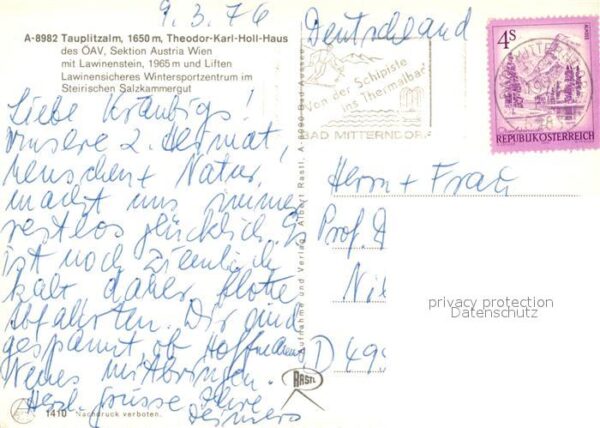 9.3.76
A-8982 Tauplitzalm, 1650 m, Theodor-Karl-Holl-Haus
des ÖAV, Sektion Austria Wien
mit Lawinenstein, 1965 m und Liften
Lawinensicheres Wintersportzentrum im
Steirischen Salzkammergut
Liebe Kräubigs!
Unsere 2. Heimat,
Menschen + Natur,
macht uns immer
restlos glücklich. Es
ist noch ziemlich
kalt daher flotte
Abfahrten. Wir sind
gespannt ob Hoffmanns
Neues mitbringen.
Herzl. Grüsse Ihre
1410 Nachdruck verboten.
Aufnahme und Verlag: Albert Rastl, A-8990 Bad Aussee
RASTL
Deutschland
Von der Schipiste
ins Thermalbad
BAD MITTERNDORF
4S
REPUBLIK ÖSTERREICH
Herrn + Frau
Prof. D
Ni
D 49
privacy protection
Datenschutz